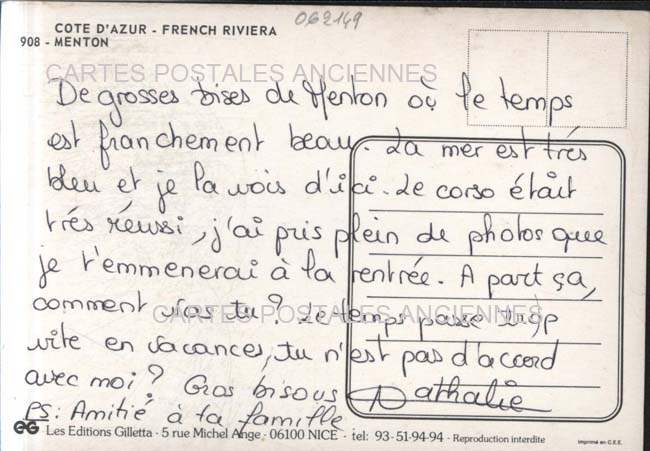 062149
COTE D'AZUR - FRENCH RIVIERA
908 - MENTON
CARTES POSTALES ANCIENNES
De grosses bises de Menton où le temps
est franchement beau. La mer est trés
bleu et je la vois d'ici. Le corso était
trés réussi, j'ai pris plein de photos que
je t'emmenerai à la rentrée. A part ça,
comment vas tu? Le temps passe trop
CARTES POSTALES ANCIENNES
vite en vacances, tu n'est pas d'accord
avec moi? Gros bisous Nathalie
PS: Amitié à ta famille
EG Les Editions Gilletta - 5 rue Michel Ange - 06100 NICE - tel: 93-51-94-94 - Reproduction interdite
Imprimé en C.E.E.